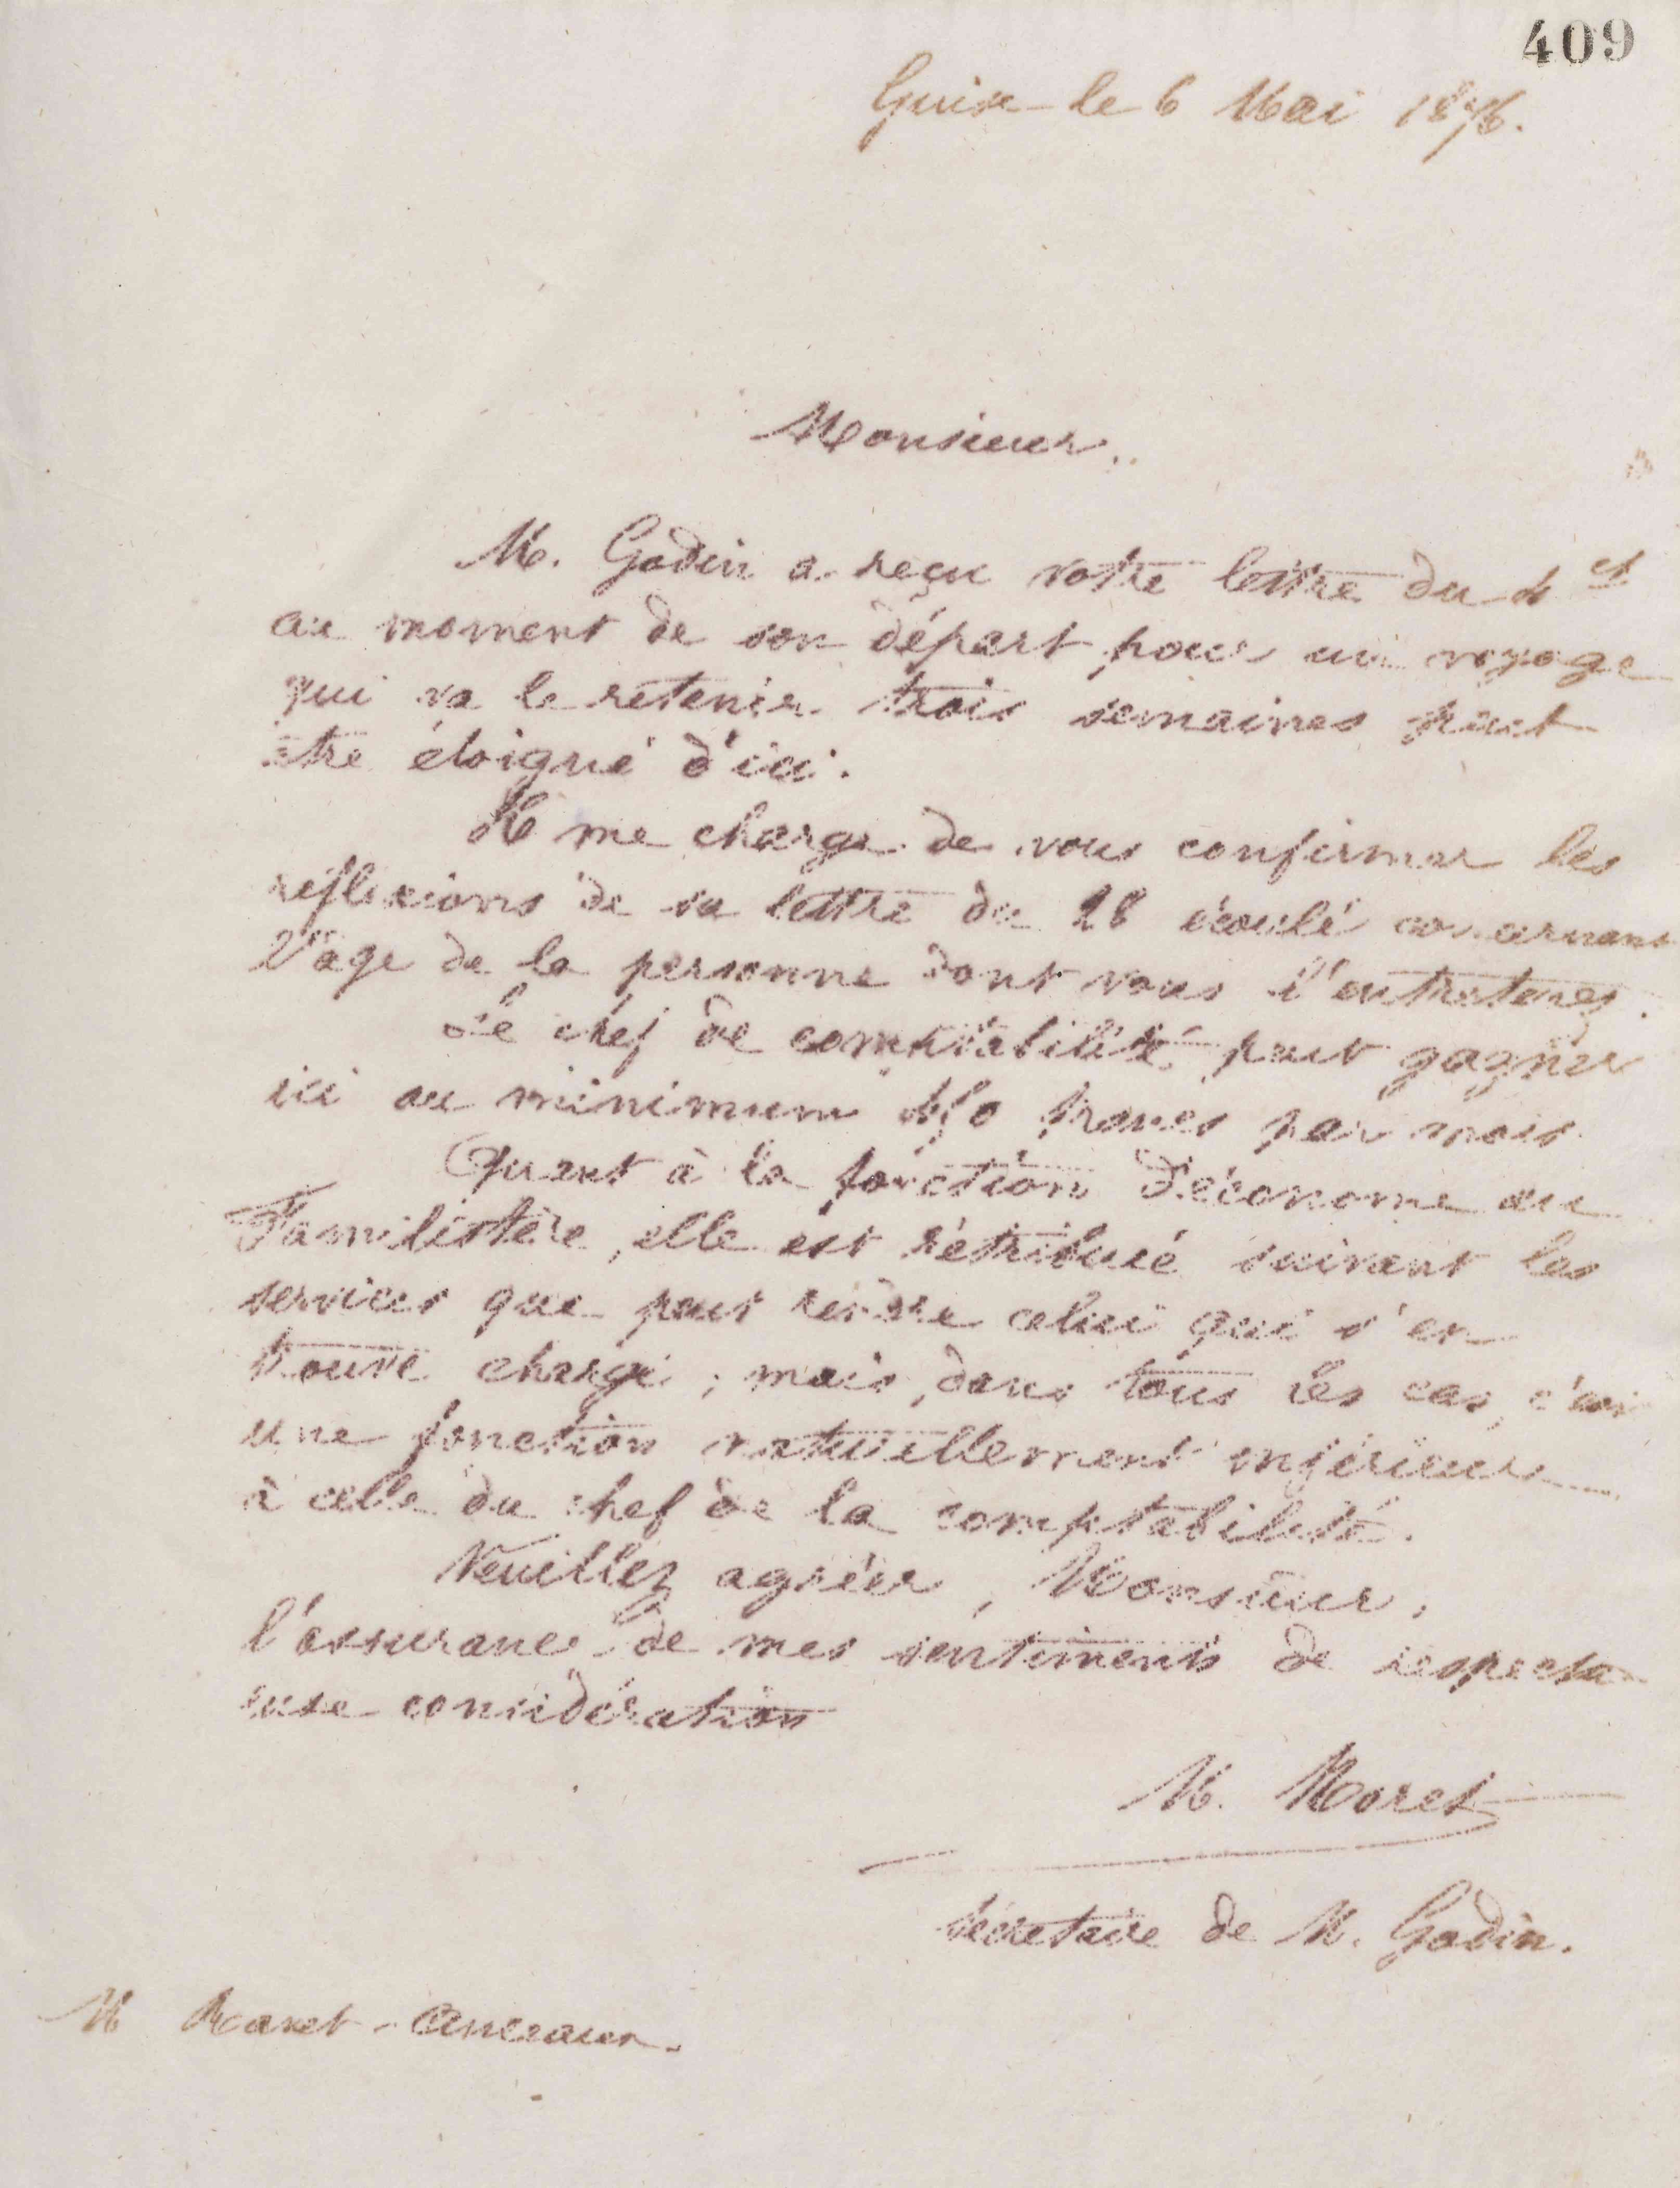 409
Guise le 6 Mai 1876.
Monsieur,
M. Godin a reçu votre lettre du 4 ct
au moment de son départ pour un voyage
qui va le retenir trois semaines peut
être éloigné d'ici.
Il me charge de vous confirmer les
réflexions de sa lettre du 28 écoulé concernant
l'âge de la personne dont vous l'entretenez.
Le chef de comptabilité peut gagner
ici au minimum francs par mois
Quant à la fonction d'économe au
Familistère, elle est rétribué suivant les
services que peut rendre celui qui s'en
trouve chargé ; mais, dans tous les cas, c'est
une fonction naturellement inférieure
à celle du chef de la comptabilité.
Veuillez agréer, Monsieur,
l'assurance de mes sentiments de respectu
euse considération
M. Moret
Secrétaire de M. Godin.
M